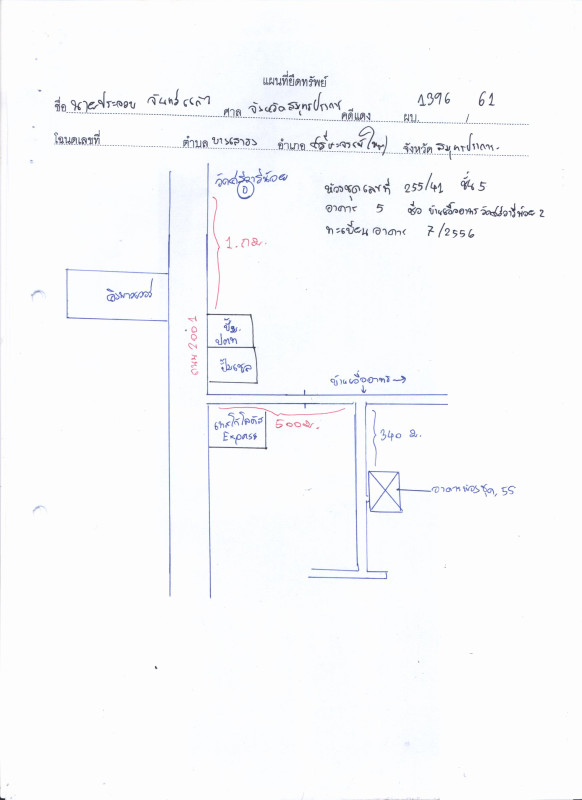 แผนที่ยึดทรัพย์
ชื่อ นายประกอบ จันทร์แก้ว ศาล จังหวัดสมุทรปราการ คดีแดง ผบ. 1396 / 61
โฉนดเลขที่ ตำบล บางเสาธง อำเภอ จังหวัด สมุทรปราการ
วัดศรีวารีน้อย
ห้องชุดเลขที่ 255/41 ชั้น 5
อาคาร 5 ชื่อ บ้านเอื้ออาทร วัดศรีวารีน้อย 2
ทะเบียนอาคาร 7/2556
1. กม.
ปั๊ม
ปตท
ถนน 2001
ปั๊มเชล
บ้านเอื้ออาทร
เทสโก้โลตัส
Express
500 ม.
340 ม.
อาคารห้องชุด, 55